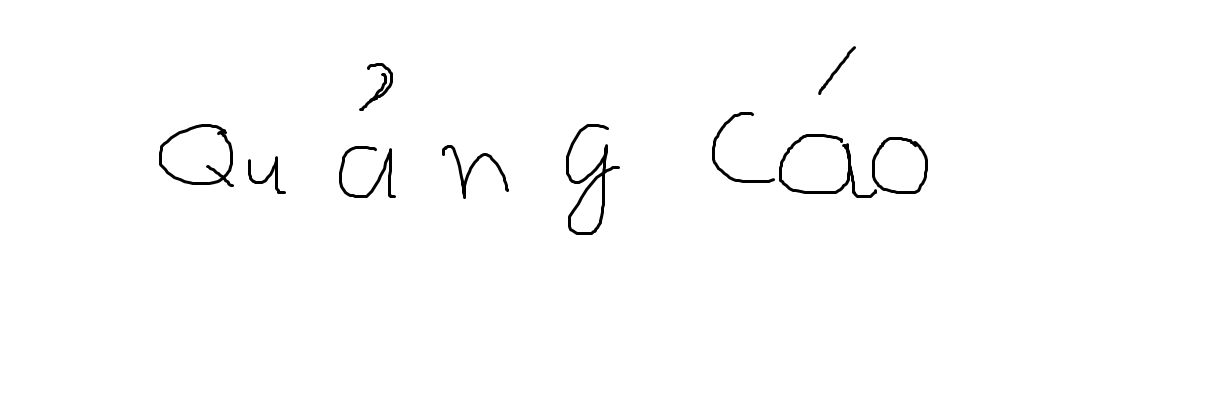 Quảng Cáo